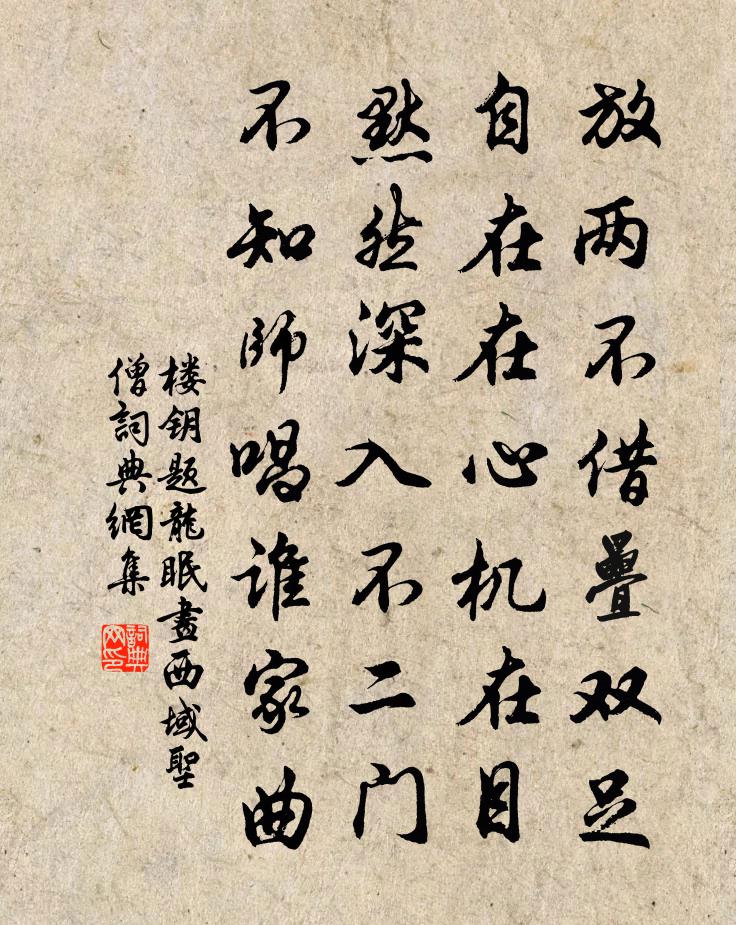 放两不借疊双足
自在在心机在目
默然深入不二门
不知師唱谁家曲
楼钥题龍眠畫西域聖
僧詞典網集
詞典
网印